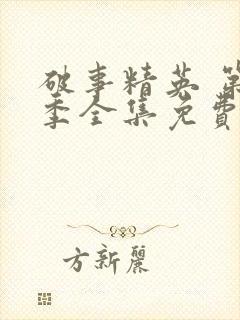 破事精英 第
季全集免費
方新麗